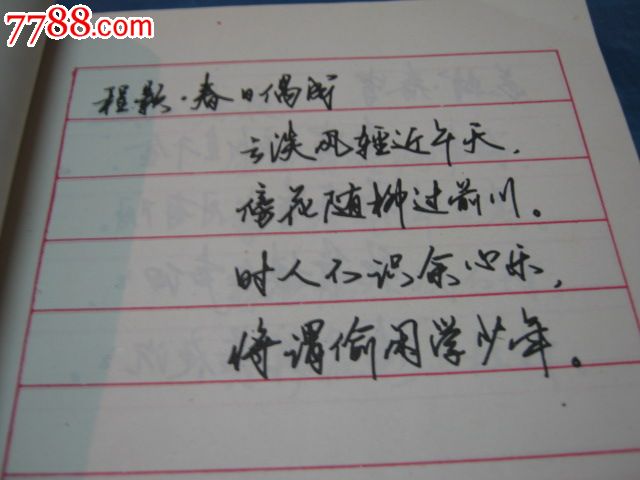 7788.com
程颢·春日偶成
云淡风轻近午天，
傍花随柳过前川。
时人不识余心乐，
将谓偷闲学少年。